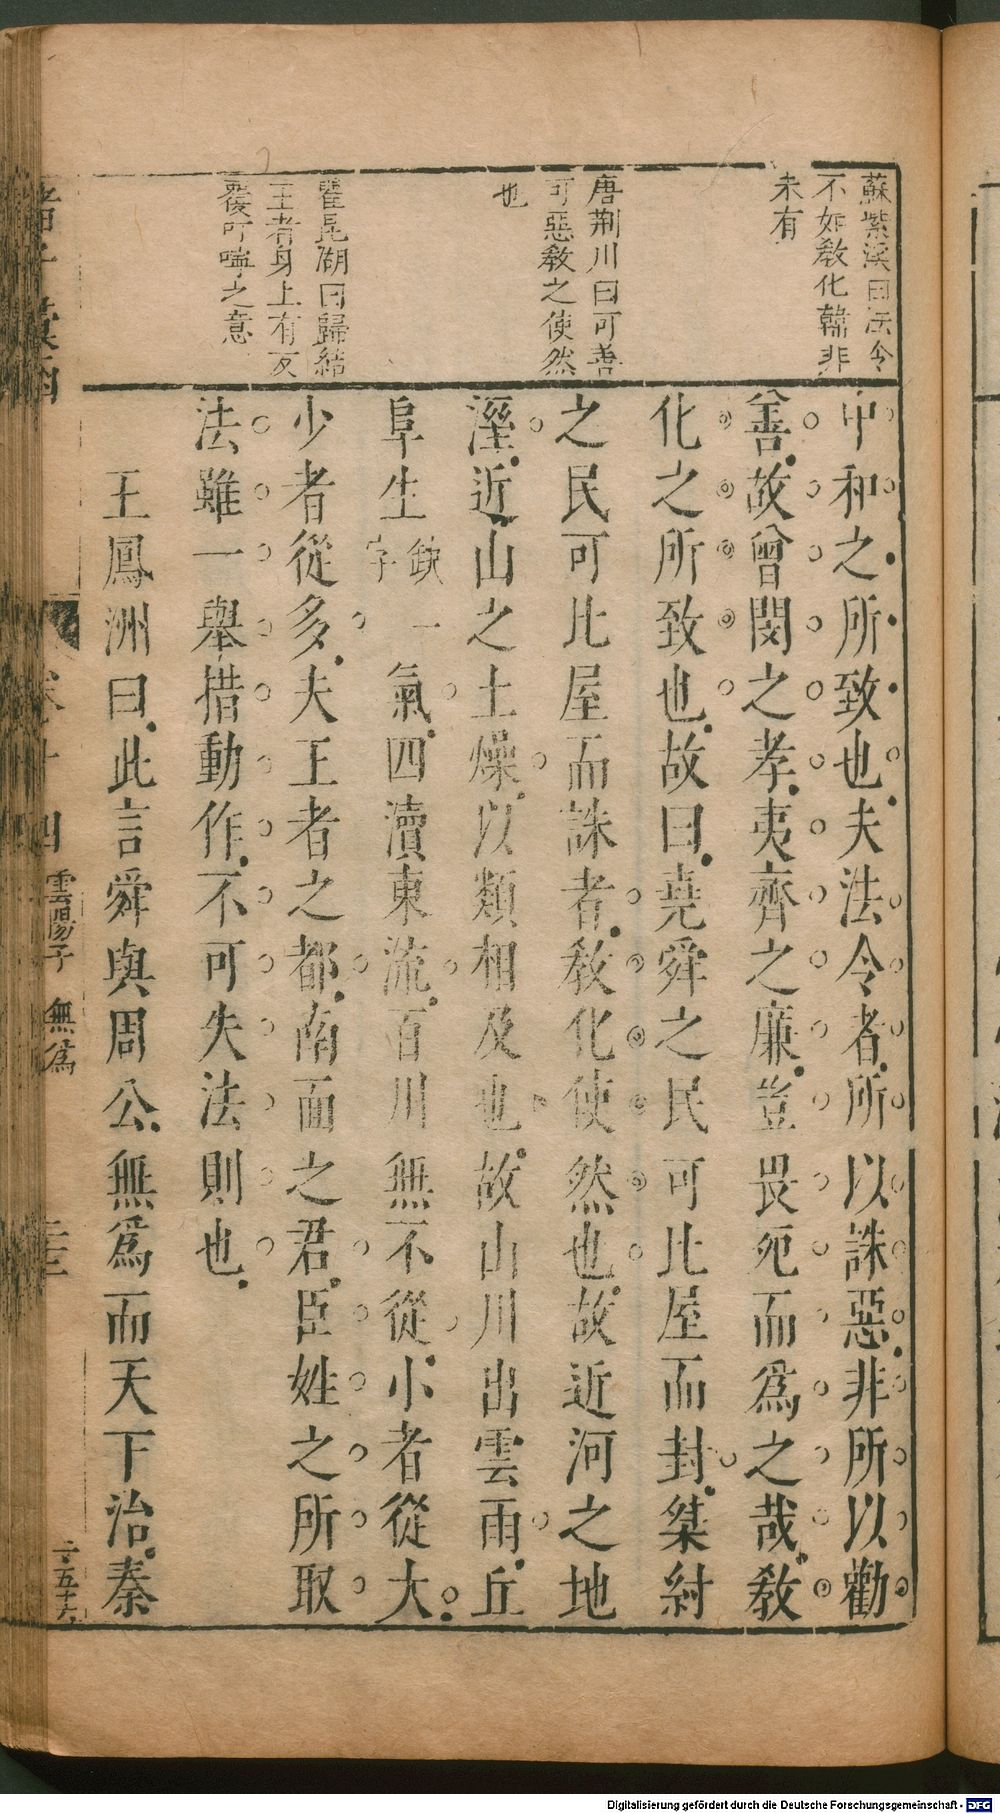 蘇紫溪曰法令
不如教化韓非
未有
唐荆川曰可善
可惡教之使然
也
瞿昆湖曰歸結
王者身上有反
覆叮嚀之意
中和之所致也夫法令者所以誅惡非所以勸
善故曾閔之孝夷齊之廉豈畏死而爲之哉教
化之所致也故曰堯舜之民可比屋而封桀紂
之民可比屋而誅者教化使然也故近河之地
溼近山之土燥以類相及也故山川出雲雨丘
阜生缺一字氣四瀆東流百川無不從小者從大
少者從多夫王者之都南面之君臣姓之所取
法雖一舉措動作不可失法則也
王鳳洲曰此言舜與周公無爲而天下治秦
四 雲陽子 無爲
Digitalisierung gefördert durch die Deutsche Forschungsgemeinschaft - DFG